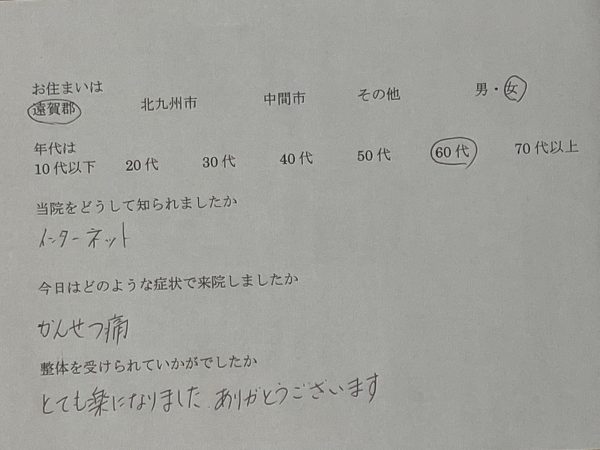 お住まいは
遠賀郡 北九州市 中間市 その他 男・女
年代は
10代以下 20代 30代 40代 50代 60代 70代以上
当院をどうして知られましたか
インターネット
今日はどのような症状で来院しましたか
かんせつ痛
整体を受けられていかがでしたか
とても楽になりました ありがとうございます